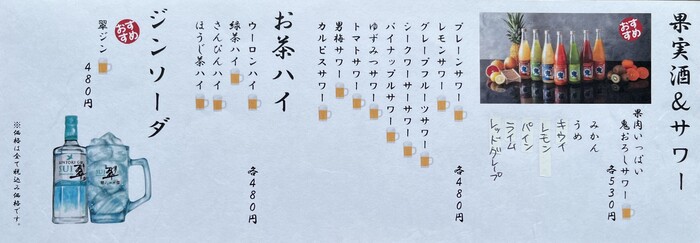 果実酒&サワー
おすすめ
果肉いっぱい
鬼おろしサワー
各530円
みかん
うめ
キウイ
レモン
パイン
ライム
レッドグレープ
プレーンサワー
レモンサワー
グレープフルーツサワー
シークワーサーサワー
パイナップルサワー
ゆずみつサワー
トマトサワー
男梅サワー
カルピスサワー
各480円
お茶ハイ
ウーロンハイ
緑茶ハイ
さんぴんハイ
ほうじ茶ハイ
各480円
ジンソーダ
おすすめ
翠ジン
480円
SUNTORY GIN
SUI
翠
翠
※価格は全て税込み価格です。